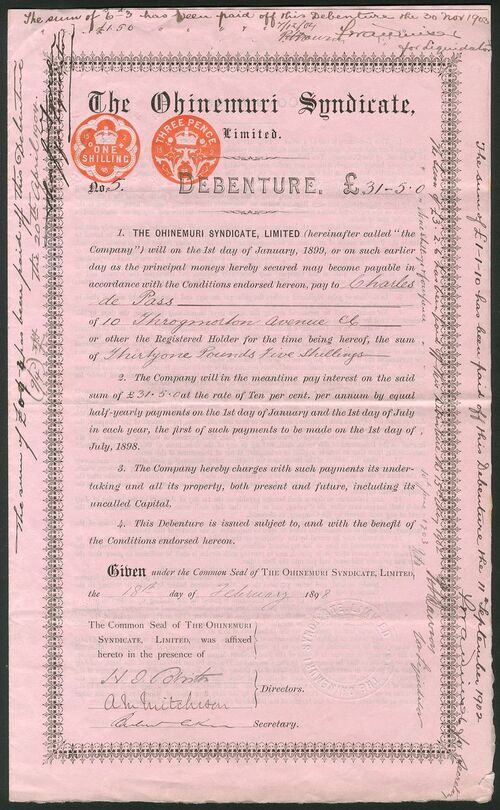 The sum of 6-3 has been paid off this Debenture the 30 Nov 1903
for Liquidator
The Ohinemuri Syndicate,
Limited.
ONE
SHILLING
THREE PENCE
No. 5. DEBENTURE. £31-5-0
1. THE OHINEMURI SYNDICATE, LIMITED (hereinafter called "the
Company") will on the 1st day of January, 1899, or on such earlier
day as the principal moneys hereby secured may become payable in
accordance with the Conditions endorsed hereon, pay to Charles
de Pass
of 10 Throgmorton Avenue E.C.
or other the Registered Holder for the time being hereof, the sum
of Thirtyone Pounds Five Shillings
2. The Company will in the meantime pay interest on the said
sum of £31-5-0 at the rate of Ten per cent. per annum by equal
half-yearly payments on the 1st day of January and the 1st day of July
in each year, the first of such payments to be made on the 1st day of
July, 1898.
3. The Company hereby charges with such payments its under-
taking and all its property, both present and future, including its
uncalled Capital.
4. This Debenture is issued subject to, and with the benefit of
the Conditions endorsed hereon.
Given under the Common Seal of THE OHINEMURI SYNDICATE, LIMITED,
the 18th day of February 1898
The Common Seal of THE OHINEMURI
SYNDICATE, LIMITED, was affixed
hereto in the presence of
A. M. Mitchison
Directors.
Secretary.
THE OHINEMURI SYNDICATE LIMITED
has been paid off this Debenture
the 20th April 1904
The sum of £1-11-10 has been paid off this Debenture the 11th September 1902